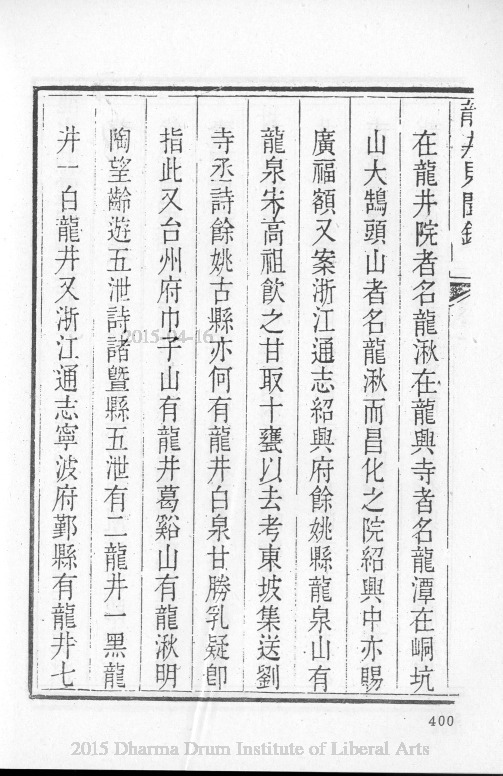 龍井見聞錄
在龍井院者名龍湫在龍興寺者名龍潭在峒坑
山大鵠頭山者名龍湫而昌化之院紹興中亦賜
廣福額又案浙江通志紹興府餘姚縣龍泉山有
龍泉宋高祖飲之甘取十甕以去考東坡集送劉
寺丞詩餘姚古縣亦何有龍井白泉甘勝乳疑卽
指此又台州府巾子山有龍井葛谿山有龍湫明
陶望齡遊五泄詩諸暨縣五泄有二龍井一黑龍
井一白龍井又浙江通志寧波府鄞縣有龍井七
2015-04-16
400
2015 Dharma Drum Institute of Liberal Arts